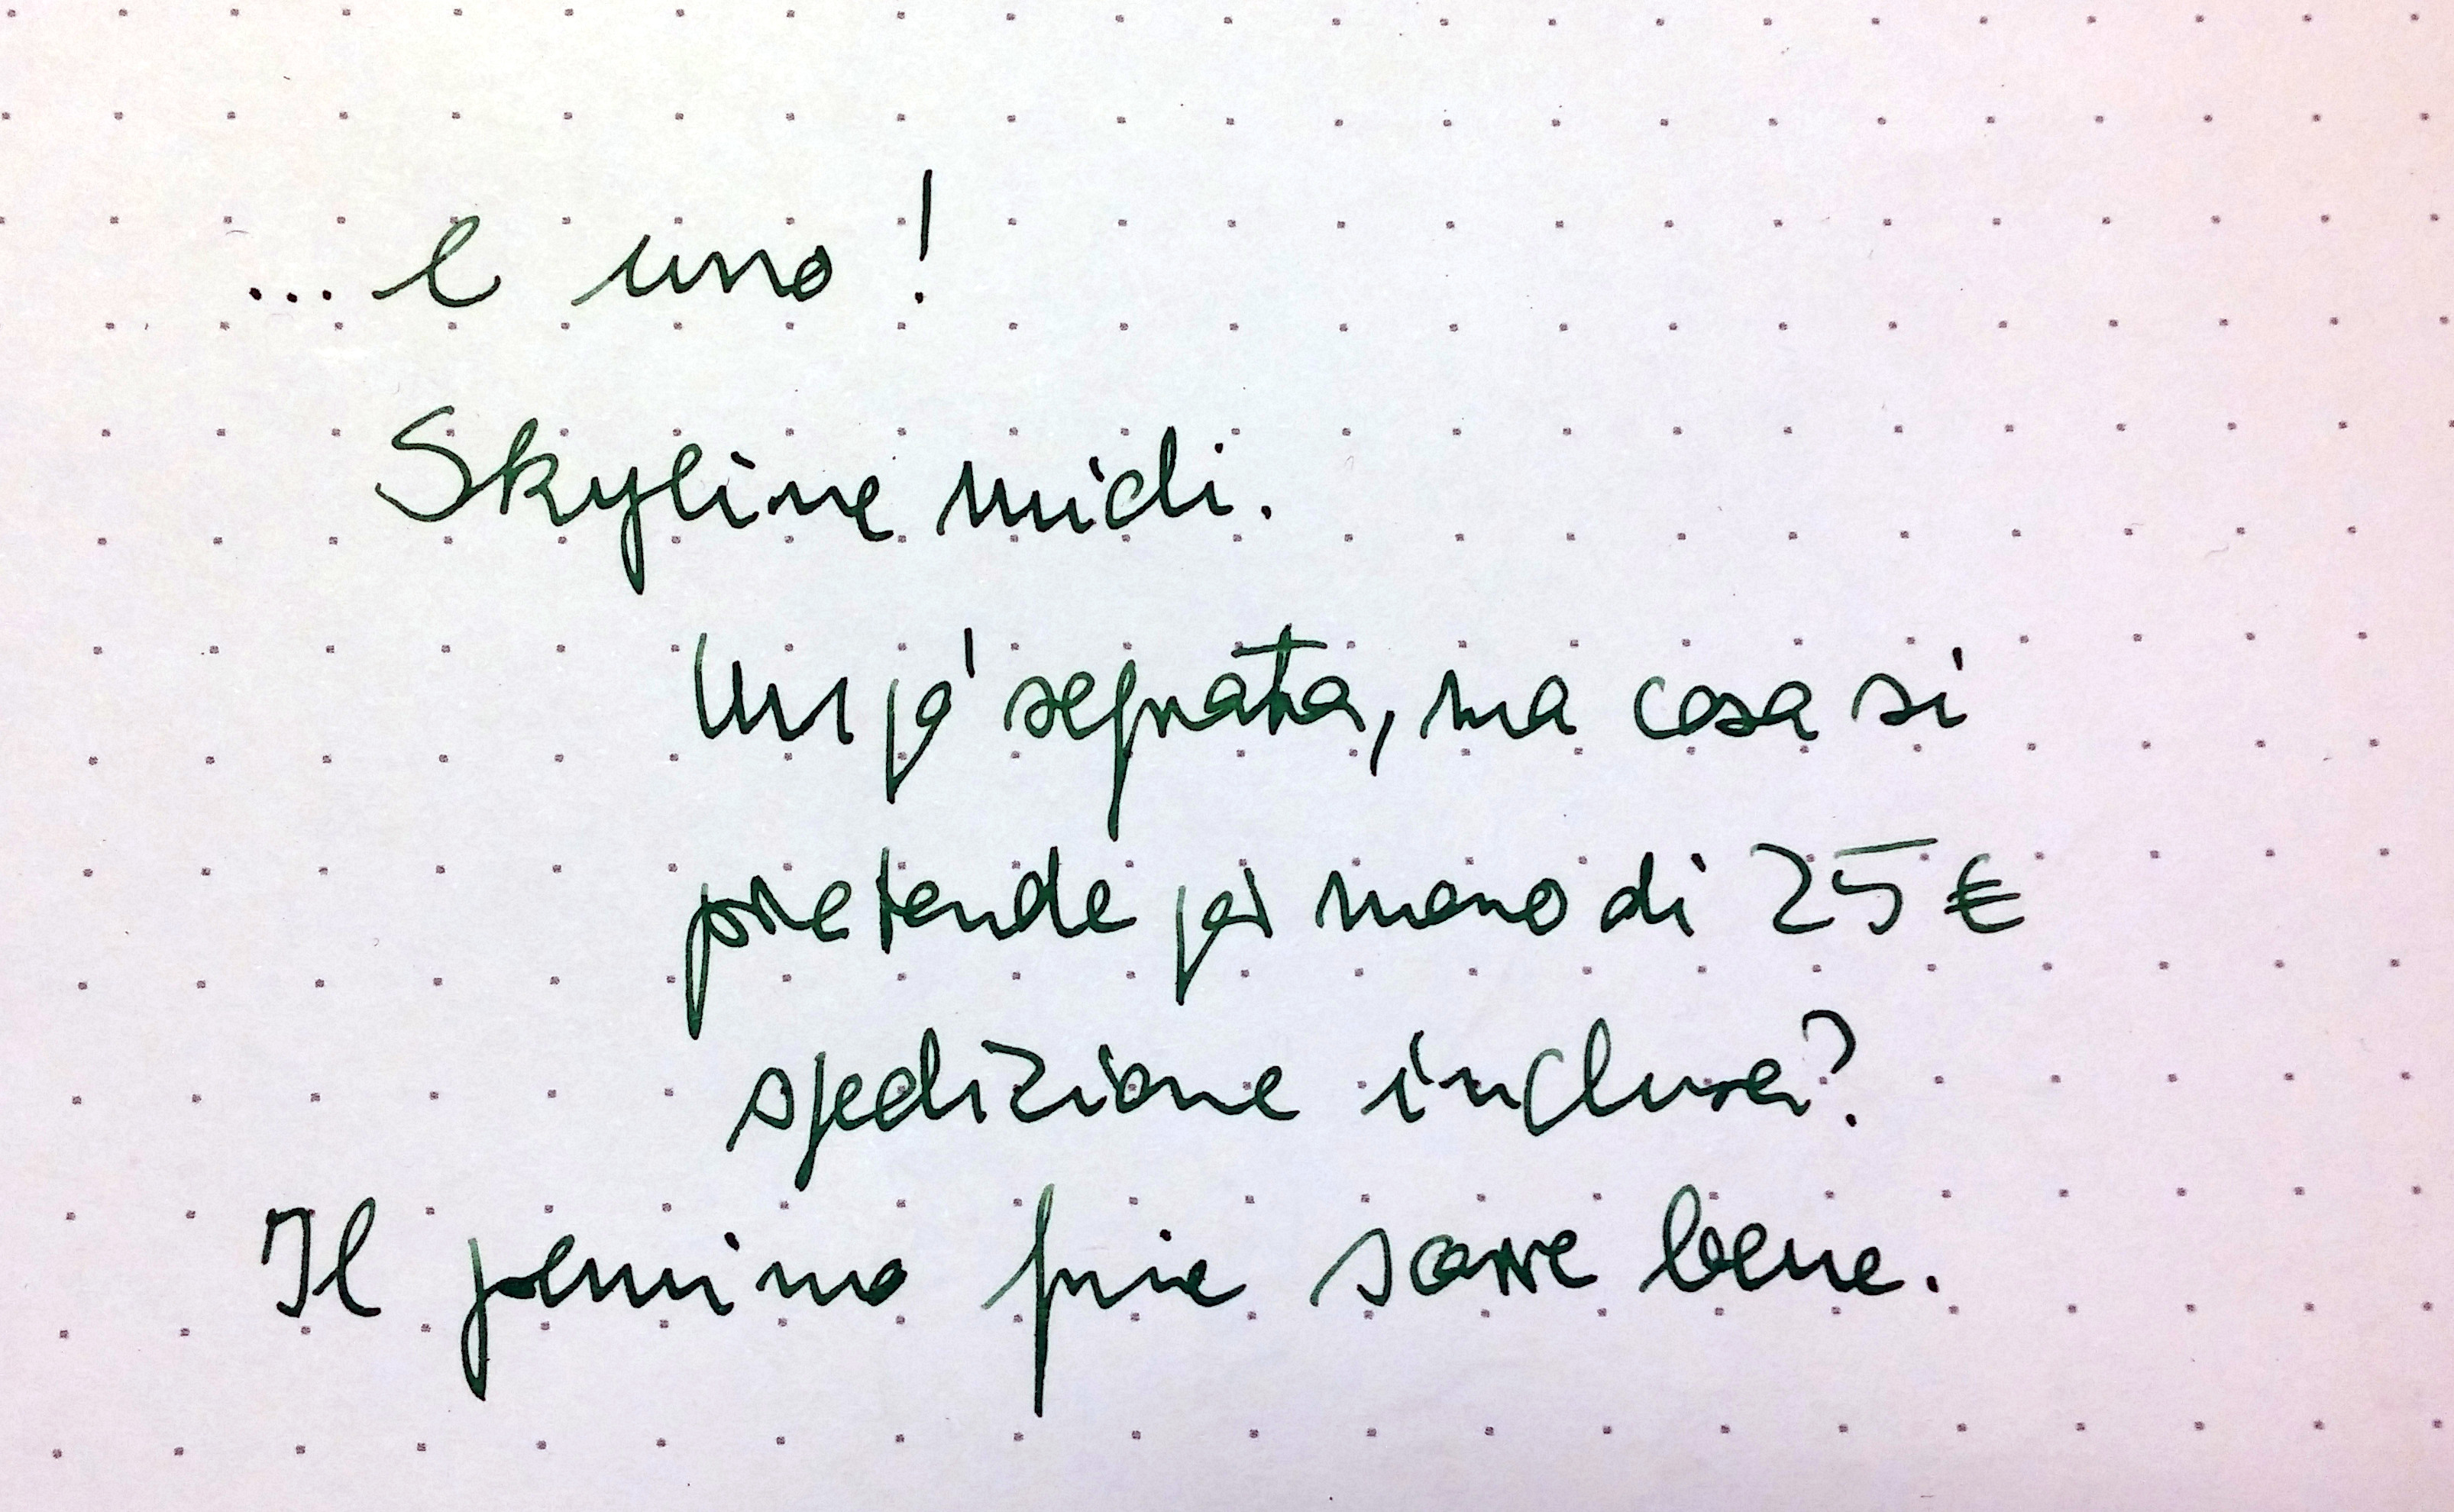 ... e uno!
Skyline midi.
Un po' segnata, ma cosa si
pretende per meno di 25 €
spedizione inclusa?
Il pennino fine scorre bene.